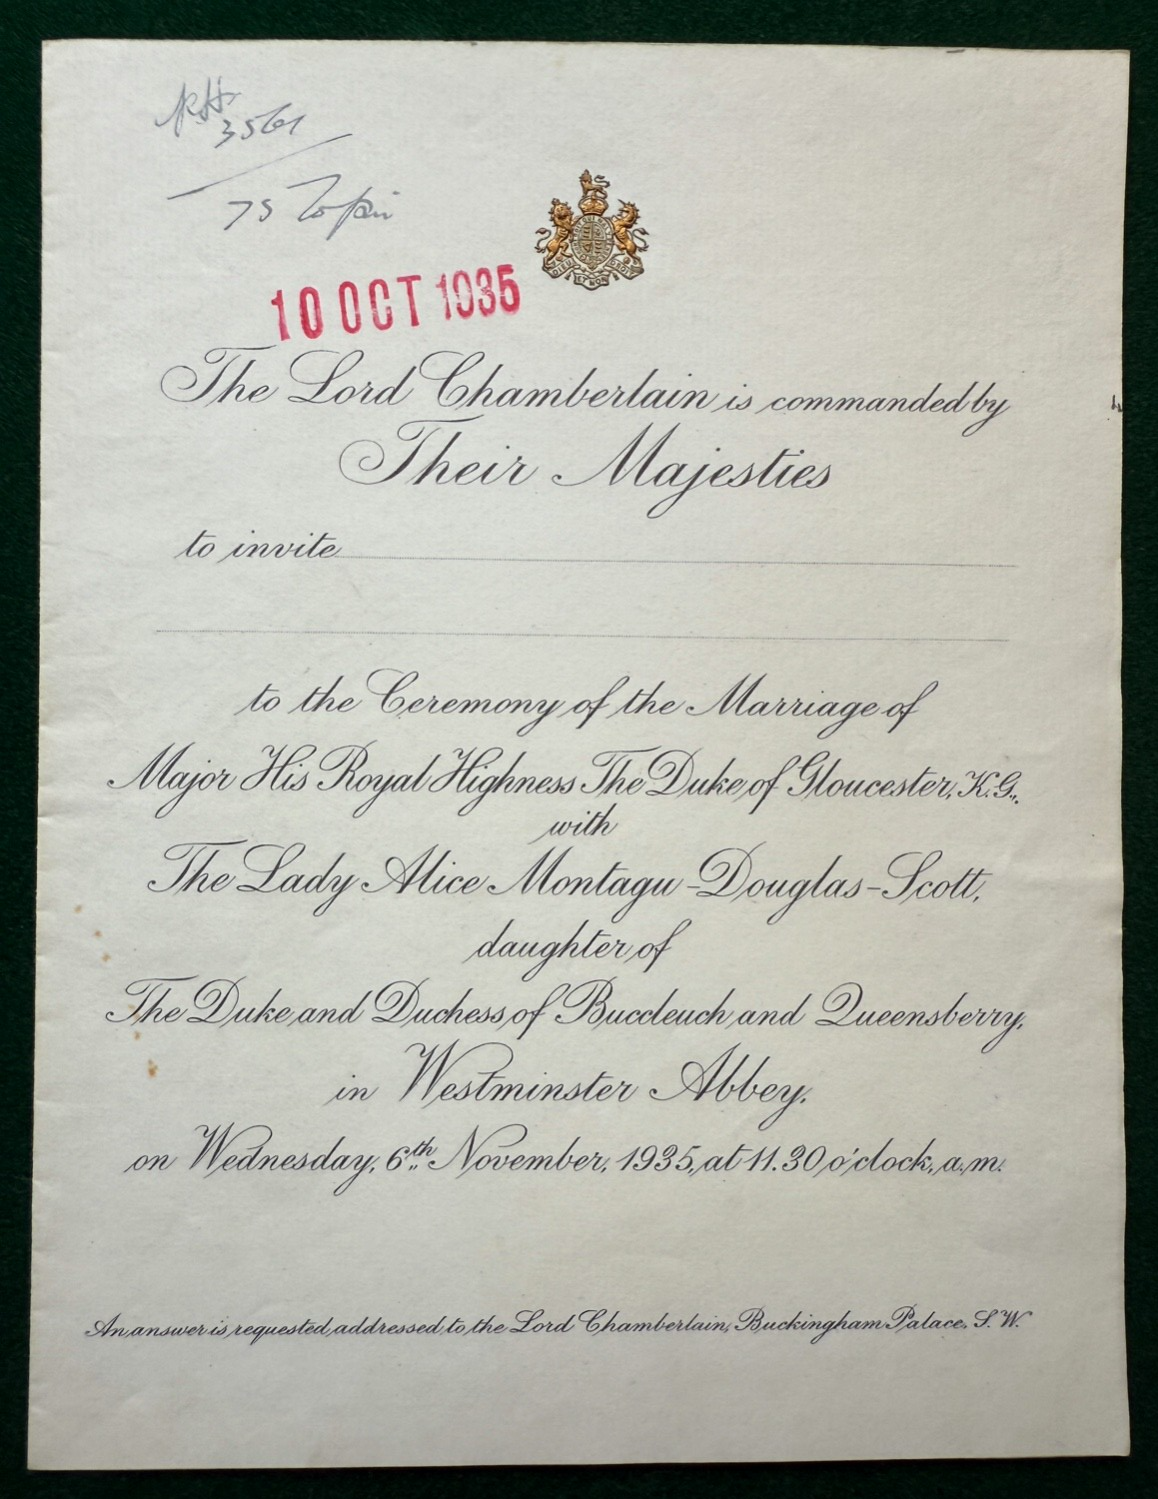 3561
75
10 OCT 1935
DIEU ET MON DROIT
The Lord Chamberlain is commanded by
Their Majesties
to invite
to the Ceremony of the Marriage of
Major His Royal Highness The Duke of Gloucester, K.G.,
with
The Lady Alice Montagu-Douglas-Scott,
daughter of
The Duke and Duchess of Buccleuch and Queensberry,
in Westminster Abbey,
on Wednesday, 6th November, 1935, at 11.30 o'clock, a.m.
An answer is requested, addressed to the Lord Chamberlain, Buckingham Palace, S.W.